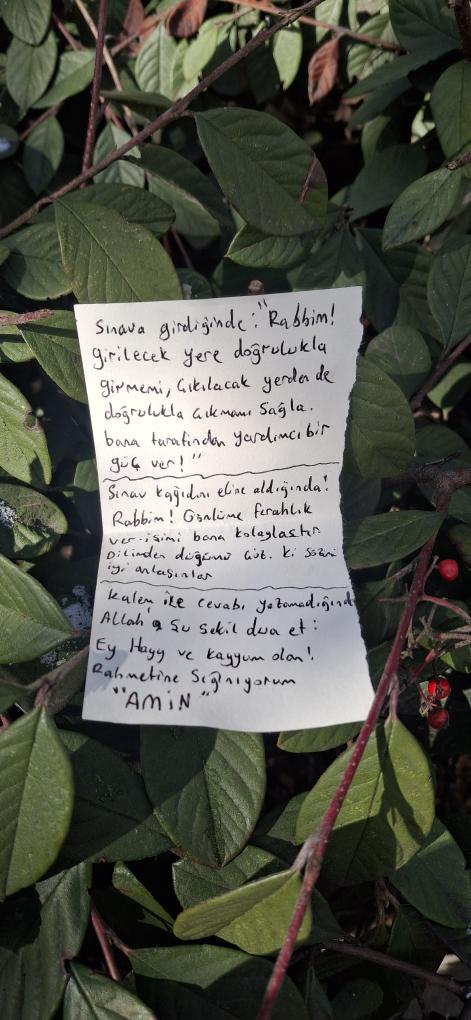 Sınava girdiğinde: "Rabbim!
girilecek yere doğrulukla
girmemi, Çıkılacak yerden de
doğrulukla çıkmamı Sağla.
bana tarafından yardımcı bir
güç ver!"
Sınav kağıdını eline aldığında!
Rabbim! Gönlüme ferahlık
ver. işimi bana kolaylaştır.
Dilimden düğümü Çöz. Ki Sözümü
iyi anlasınlar
Kalem ile cevabı yazamadığında
Allah'a Şu Şekil dua et:
Ey Hayy ve Kayyum olan!
Rahmetine Sığınıyorum
"AMİN"